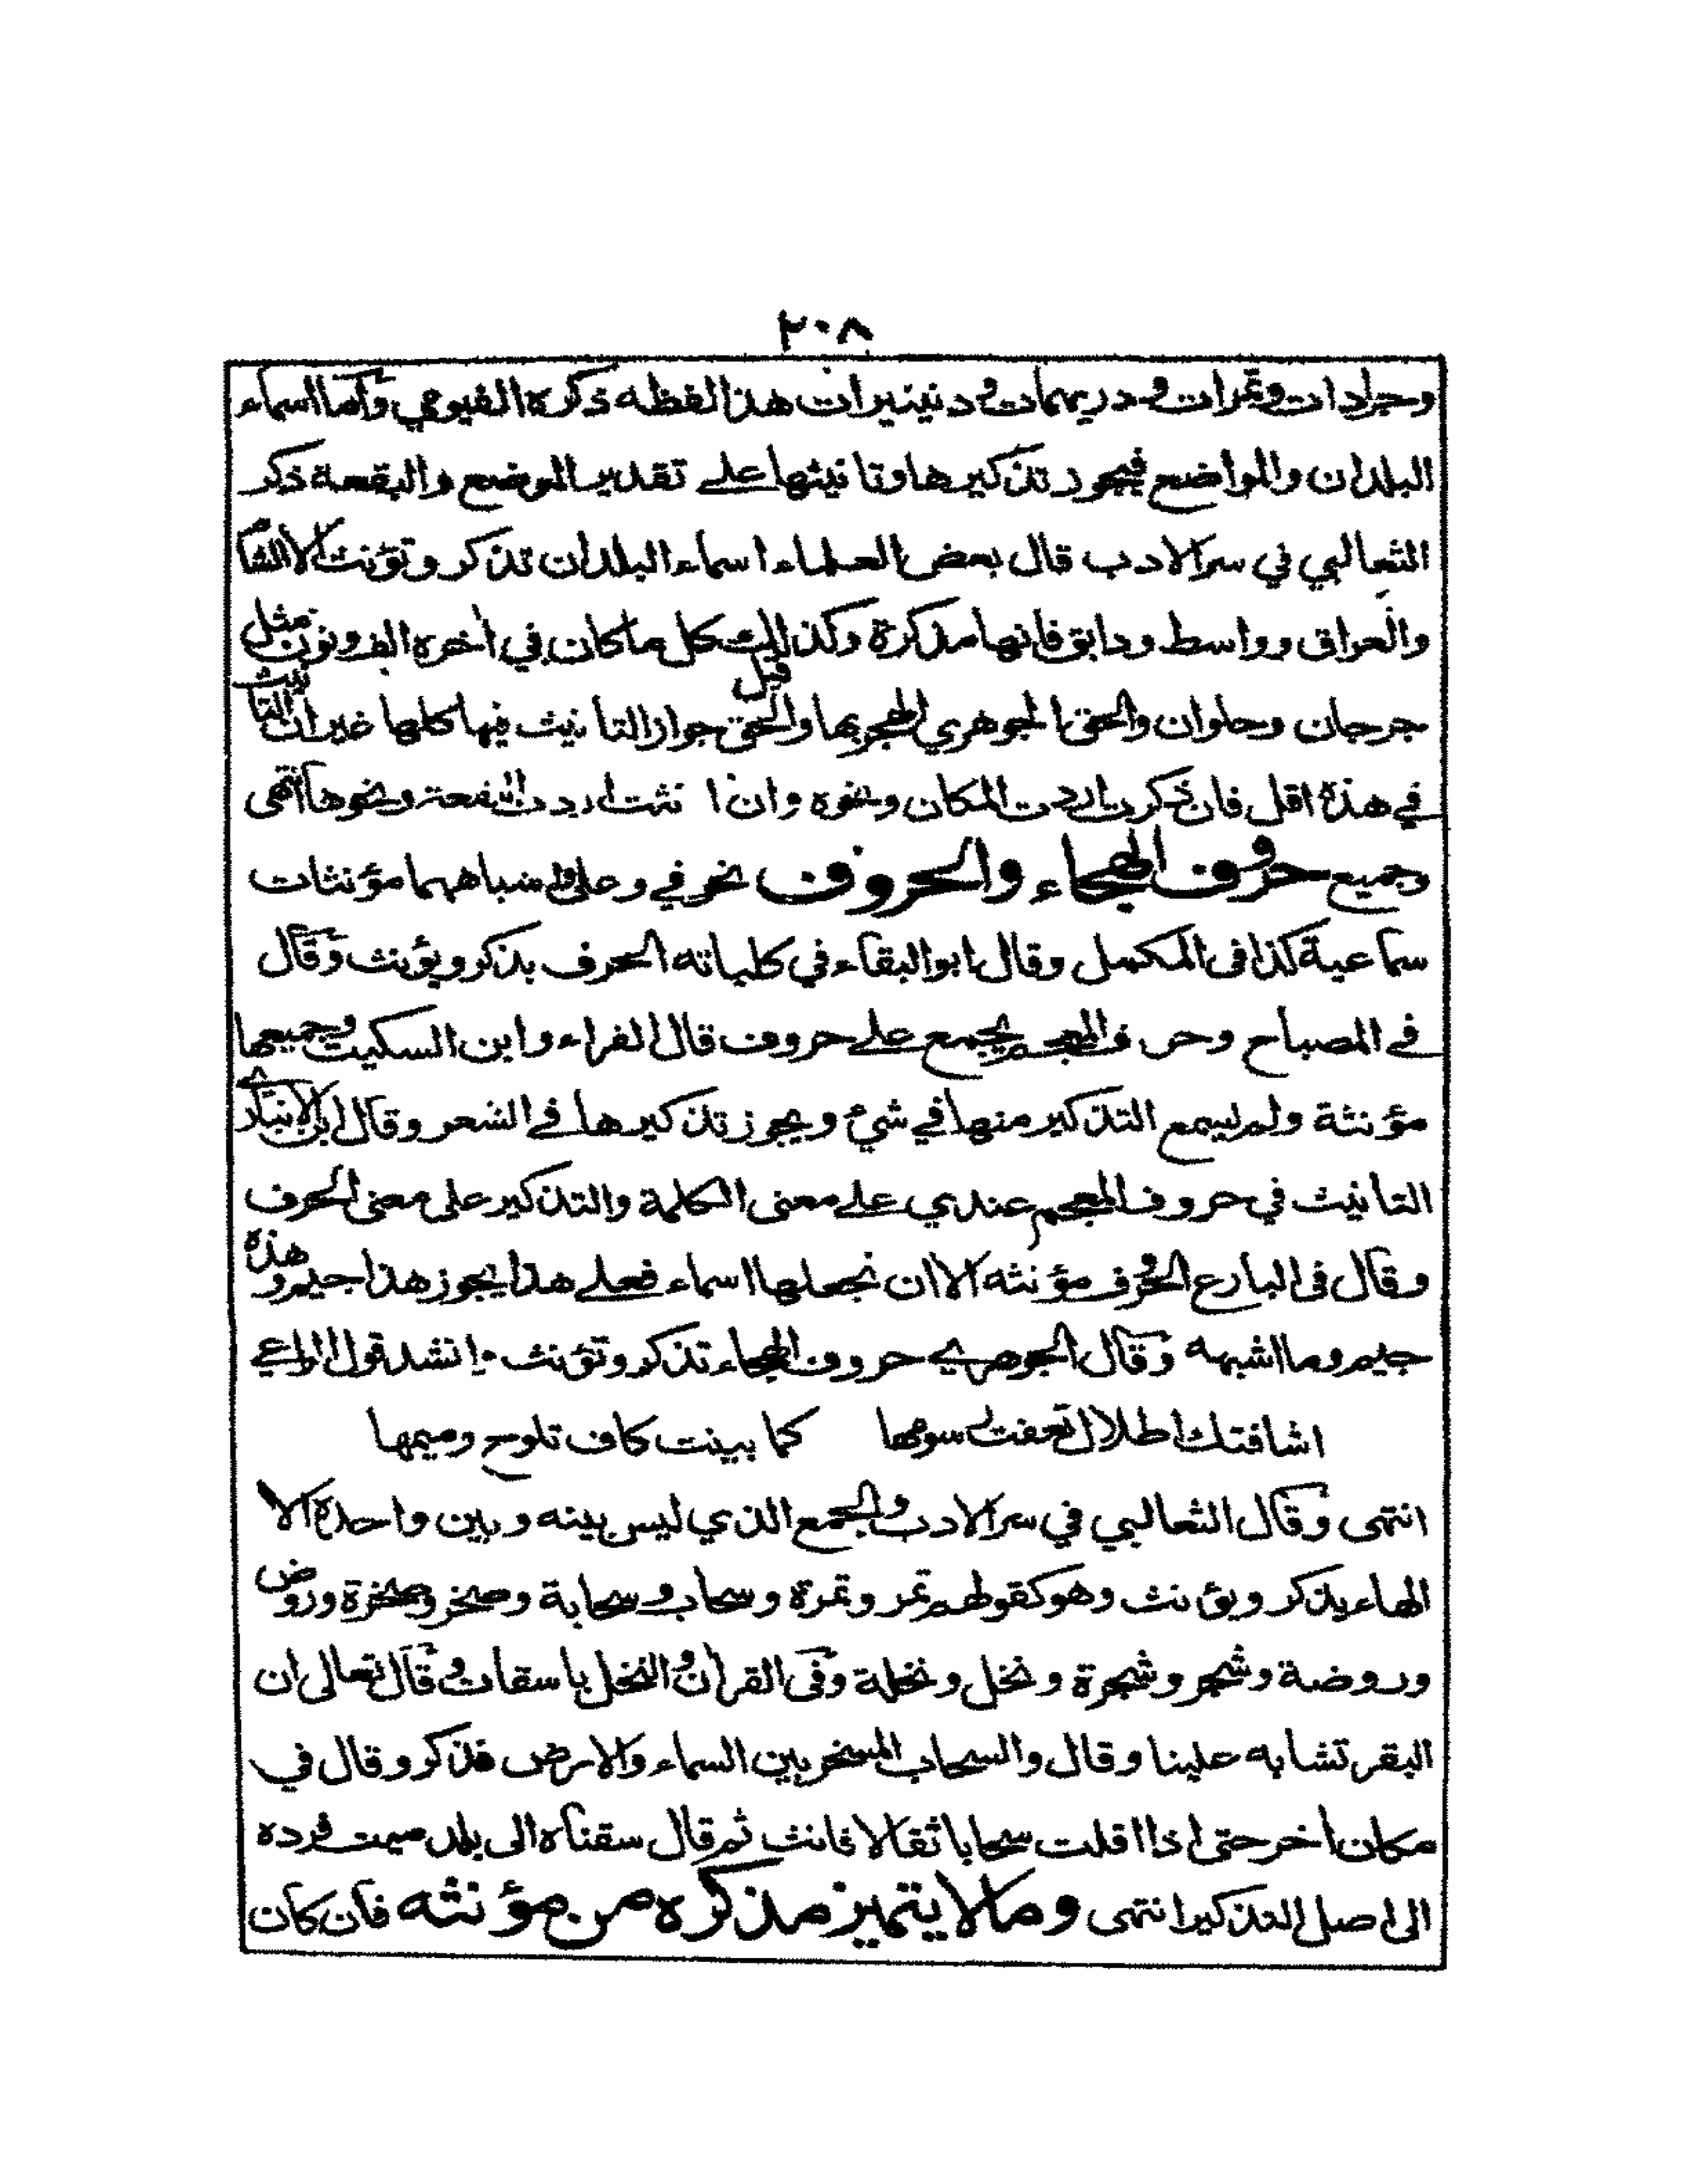 ٢٠٨
وجرادات وتمرات ودريهمات ودنينيرات هذا لفظه ذكره الفيومي وأما اسماء
البلدان والمواضع فيجوز تذكيرها وتانيثها على تقدير الموضع والبقعة ذكر
الثعالبي في سر الادب قال بعض العلماء اسماء البلدان تذكر وتؤنث الا الشام
والعراق وواسط ودابق فانها مذكرة وكذلك كل ما كان في اخره الف ونون مثل
جرجان وحلوان والحق الجوهري الهجر بها والحق قيل جواز التانيث فيها كلها غير ان التانيث
في هذه اقل فان ذكرت اردت المكان ونحوه وان انثت اردت البقعة ونحوها انتهى
وجميع حروف الهجاء والحروف نحو في وعلى وما ضباههما مؤنثات
سماعية كذا فى المكمل وقال ابو البقاء في كلياته الحرف يذكر ويؤنث وقال
في المصباح وحرف المعجم يجمع على حروف قال الفراء وابن السكيت وجميعها
مؤنثة ولم يسمع التذكير منها في شيء ويجوز تذكيرها في الشعر وقال ابن الانباري
التانيث في حروف المعجم عندي على معنى الكلمة والتذكير على معنى الحرف
وقال فى البارع الحروف مؤنثه الا ان نجعلها اسماء فعلى هذا يجوز هذا جيم وهذه
جيم وما اشبهه وقال الجوهري حروف الهجاء تذكر وتؤنث وانشد قول الراعي
اشاقتك اطلال تعفت رسومها كما بينت كاف تلوح وميمها
انتهى وقال الثعالبي في سر الادب والجمع الذي ليس بينه وبين واحدة الا
الهاء يذكر ويؤنث وهو كقولهم تمر وتمرة وسحاب وسحابة وصخر وصخرة وروض
وروضة وشجر وشجرة ونخل ونخلة وفى القران والنخل باسقات وقال تعالى ان
البقر تشابه علينا وقال والسحاب المسخر بين السماء والارض فذكر وقال في
مكان اخر حتى اذا اقلت سحابا ثقالا فانث ثم قال سقناه الى بلد ميت فرده
الى اصل التذكير انتهى وما لا يتميز مذكره من مؤنثه فان كان